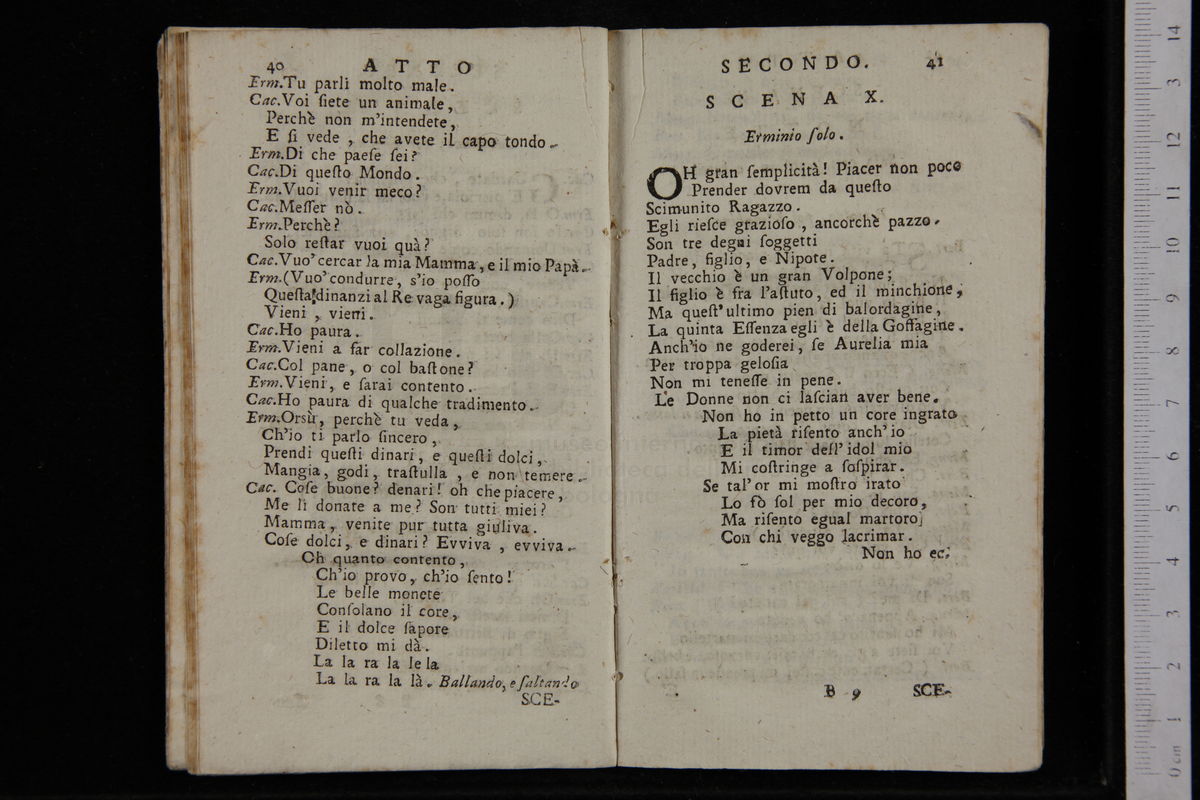 40 ATTO
Erm.Tu parli molto male.
Cac.Voi ſiete un animale,
Perchè non m'intendete,
E ſi vede , che avete il capo tondo.
Erm.Di che paeſe ſei?
Cac.Di queſto Mondo.
Erm.Vuoi venir meco?
Cac.Meſſer nò.
Erm.Perchè?
Solo reſtar vuoi quà?
Cac.Vuo' cercar la mia Mamma, e il mio Papà.
Erm.(Vuo' condurre, s'io poſſo
Queſta dinanzi al Re vaga figura.)
Vieni , vieni.
Cac.Ho paura.
Erm.Vieni a far collazione.
Cac.Col pane, o col baſtone?
Erm.Vieni, e ſarai contento.
Cac.Ho paura di qualche tradimento.
Erm.Orsù, perchè tu veda,
Ch'io ti parlo ſincero,
Prendi queſti dinari, e queſti dolci,
Mangia, godi, traſtulla , e non temere.
Cac. Coſe buone? denari! oh che piacere,
Me li donate a me? Son tutti miei?
Mamma, venite pur tutta giuliva.
Coſe dolci, e dinari? Evviva , evviva.
Oh quanto contento,
Ch'io provo, ch'io ſento!
Le belle monete
Conſolano il core,
E il dolce ſapore
Diletto mi dà.
La la ra la le la
La la ra la là. Ballando, e ſaltando
SCE-
SECONDO. 41
SCENA X.
Erminio ſolo.
OH gran ſemplicità! Piacer non poco
Prender dovrem da queſto
Scimunito Ragazzo.
Egli rieſce grazioſo , ancorchè pazzo.
Son tre degni ſoggetti
Padre, figlio, e Nipote.
Il vecchio è un gran Volpone;
Il figlio è fra l'aſtuto, ed il minchione,
Ma queſt' ultimo pien di balordagine,
La quinta Eſſenza egli è della Goffagine.
Anch'io ne goderei, ſe Aurelia mia
Per troppa geloſia
Non mi teneſſe in pene.
Le Donne non ci laſcian aver bene.
Non ho in petto un core ingrato
La pietà riſento anch' io
E il timor dell' idol mio
Mi coſtringe a ſoſpirar.
Se tal' or mi moſtro irato
Lo fò ſol per mio decoro,
Ma riſento egual martoro
Con chi veggo lacrimar.
Non ho ec.
B 9 SCE-